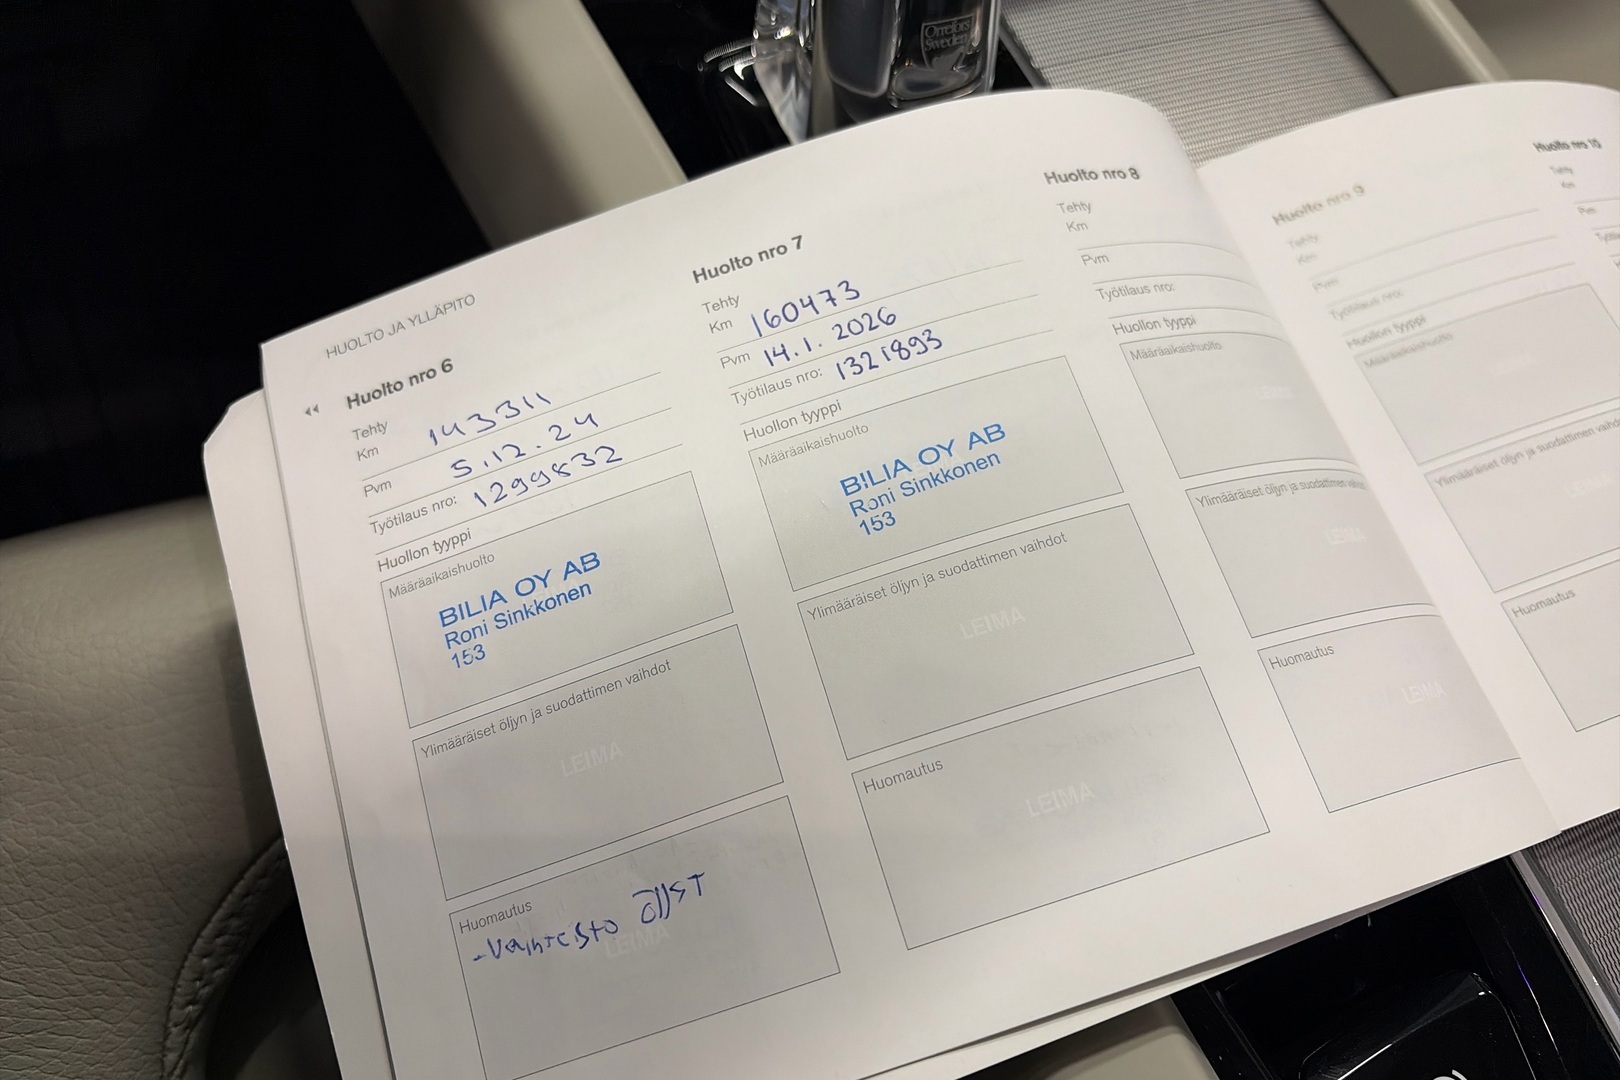 Orrefors
Sweden
HUOLTO JA YLLÄPITO
Huolto nro 6
Tehty
Km 143311
Pvm 5.12.24
Työtilaus nro: 1299832
Huollon tyyppi
Määräaikaishuolto
BILIA OY AB
Roni Sinkkonen
153
Ylimääräiset öljyn ja suodattimen vaihdot
LEIMA
Huomautus
-Vaihteisto öljyt
LEIMA
Huolto nro 7
Tehty
Km 160473
Pvm 14.1.2026
Työtilaus nro: 1321893
Huollon tyyppi
Määräaikaishuolto
BILIA OY AB
Roni Sinkkonen
153
Ylimääräiset öljyn ja suodattimen vaihdot
LEIMA
Huomautus
LEIMA
Huolto nro 8
Tehty
Km
Pvm
Työtilaus nro:
Huollon tyyppi
Määräaikaishuolto
Ylimääräiset öljyn ja suodattimen
LEIMA
Huomautus
LEIMA
Huolto nro 9
Tehty
Km
Pvm
Työtilaus nro:
Huollon tyyppi
Määräaikaishuolto
Ylimääräiset öljyn ja suodattimen
Huomautus
Huolto nro 10
Tehty
Km
Pvm